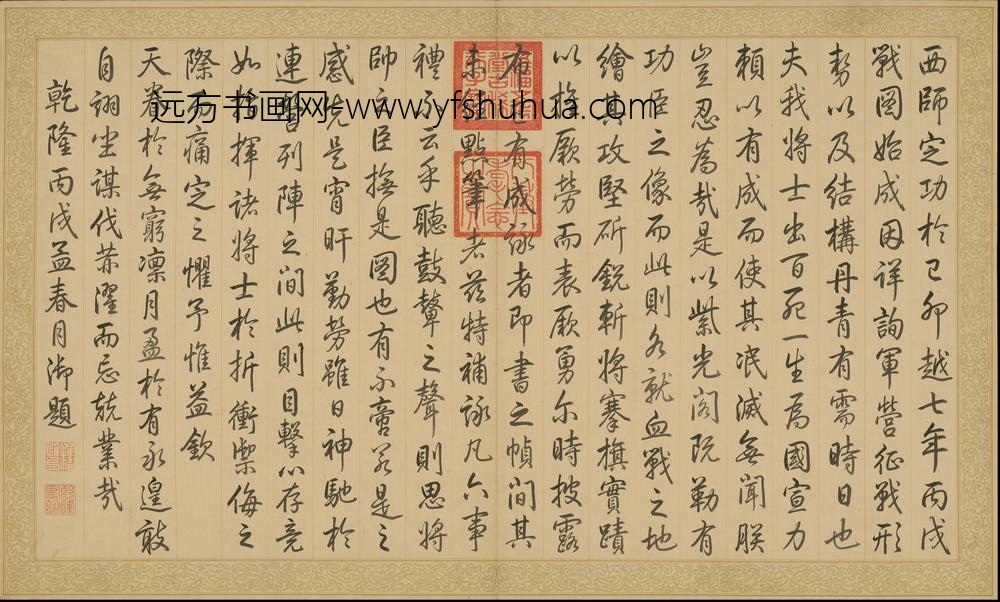 西師定功於己卯越七年丙戌
戰圖始成因詳詢軍營征戰形
勢以及結構丹青有需時日也
夫我將士出百死一生為國宣力
賴以有成而使其泯滅無聞朕
豈忍為哉是以紫光閣既勒有
功臣之像而此則各就血戰之地
繪其攻堅斫銳斬將搴旗實蹟
以旌厥勞而表厥勇尔時披露
布已有成詠者即書之幀間其
未經點筆者茲特補詠凡六事
禮不云乎聽鼓鼙之聲則思將
帥之臣撫是圖也有不啻若是之
感先是宵旰勤勞雖日神馳於
連營列陣之間此則目擊心存竟
如指揮諸將士於折衝禦侮之
際痛定之懼予惟益欽
天眷於無窮凜月盈於有永遑敢
自詡坐謀伐荼濯而忘兢業哉
乾隆丙戌孟春月御題
远方书画网-www.yfshuhua.com